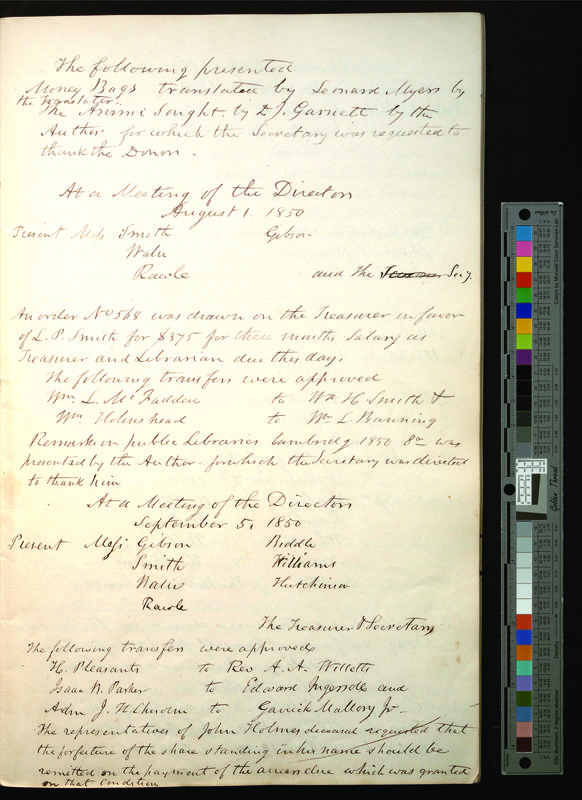 The following presented
Money Bags translated by Leonard Myers by
the translator.
The Animi Sought. by D J. Garnett by the
Author for which the Secretary was requested to
thank the Donor.
At a Meeting of the Directors
August 1. 1850
Present Mess Smith Gibson
Waln
Rawle and the Secy.
An order No 568 was drawn on the Treasurer in favor
of L. P. Smith for $375 for three months Salary as
Treasurer and Librarian due this day.
The following transfers were approved
Wm L. McFadden to Wm H. Smith &
Wm Holmshead to Wm L Banning
Remarks on public Libraries Cambridg 1850 8vo was
presented by the Author for which the Secretary was directed
to thank him
At a Meeting of the Directors
September 5, 1850
Present Mess Gibson Biddle
Smith Williams
Waln Hutchinson
Rawle
The Treasurer & Secretary
The following transfers were approved
H. Pleasants to Rev A. A. Willetts
Isaac B. Parker to Edward Ingersoll and
Adm J. H. Chisolm to Garrick Mallory Jr
The representatives of John Holmes deceased requested that
the forfeiture of the share standing in his name should be
remitted on the payment of the arrears due which was granted
on that condition
Golden Thread